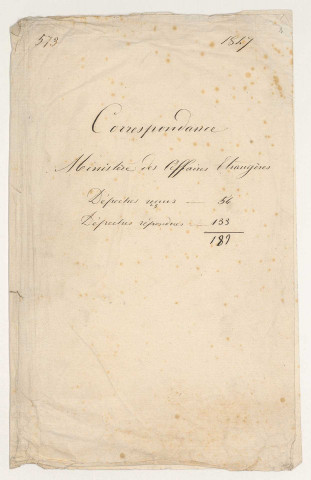 573 1847
Correspondance
Ministère des Affaires Etrangères
Dépêches reçues — 56
Dépêches répondues — 133
189